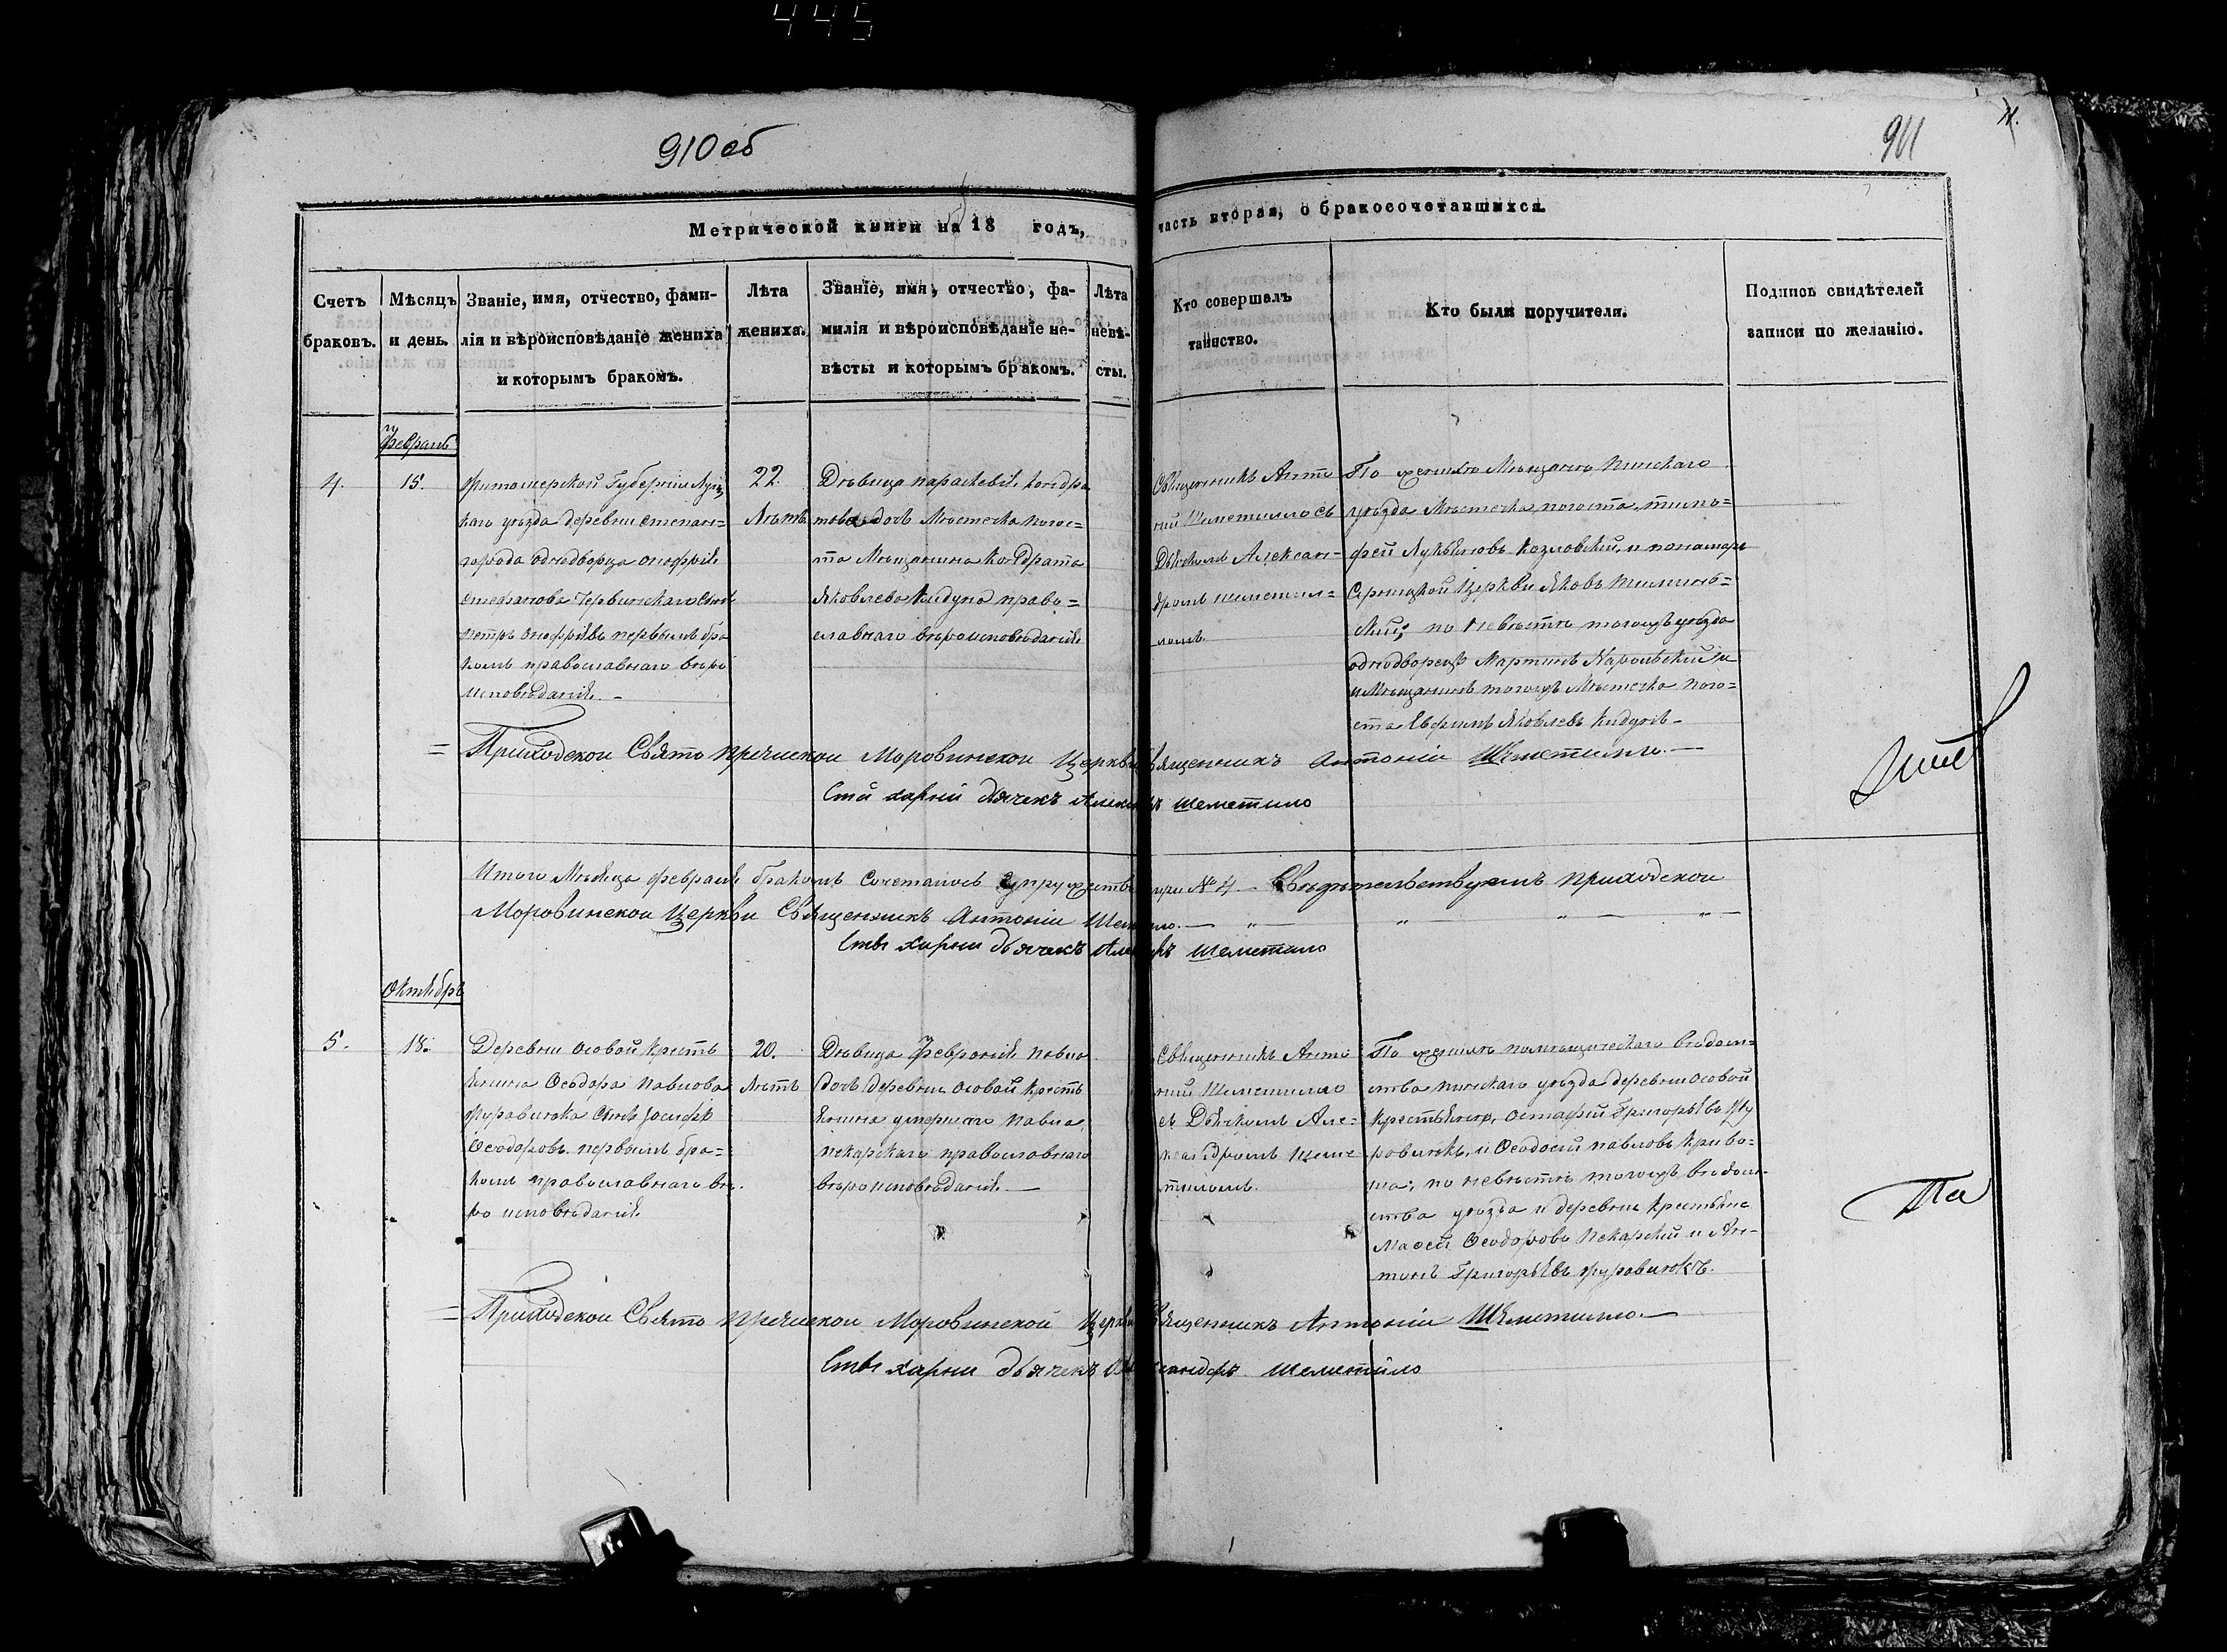 445
910 об
911
Метрической книги на 18 годъ,
часть вторая, о бракосочетавшихся.
Счетъ
браковъ.
Мѣсяцъ
и день.
Званіе, имя, отчество, фами-
лія и вѣроисповѣданіе жениха
и которымъ бракомъ.
Лѣта
жениха.
Званіе, имя, отчество, фа-
милія и вѣроисповѣданіе не-
вѣсты и которымъ бракомъ.
Лѣта
невѣ-
сты.
Кто совершалъ
таинство.
Кто были поручители.
Подпись свидѣтелей
записи по желанію.
Февраль
4.
15.
Житомерской Губерніи
каго уѣзда деревни степан-
города однодворца онофрія
стефанова Червинскаго сынъ
петръ онофріевъ первымъ бра
комъ православнаго вѣро
исповѣданія. –
22.
Лѣтъ
Дѣвица параскевія кондра
това дочь Мѣстечка погос-
та Мѣщанина Кондрата
Яковлева Кидуна право=
славнаго вѣроисповѣданія
Священникъ Анто
ній Шеметилло съ
Дьячкомъ Алексан=
дромъ шеметил=
ломъ.
По женихѣ Мѣщанинъ Пинскаго
уѣзда Мѣстечка погоста, тимо=
фей Лукьяновъ Козловскій, и понамарь
Церкви Яковъ
по невѣстѣ тогожъ уѣзда
однодворецъ Мартинъ и
и Мѣщанинъ тогожъ Мѣстечка пого=
ста Ефимъ Яковлевъ Кидунъ –
= Приходской Свято Пречиской Моровинской Церкви Священникъ Антоній Шеметилло. –
Стихарный дьячекъ Александръ шеметило
Итого Мѣсяца февраля бракомъ сочеталось супружество при № 4 – Свѣдѣтельствуемъ Приходской
Моровинской Церкви Священникъ Антоній Шеметилло. – „ – „ – „ –
Стихарный дьячекъ Александръ шеметило
Октябрь
5.
18.
Деревни Особой Кресть
янина Ѳеодора Павлова
Журавлюка сынъ Іосифъ
Ѳеодоровъ первымъ бра=
комъ православнаго вѣ.
ро исповѣданія
20.
Лѣтъ
Дѣвица Февронія Павло
дочь деревни Особой Кресть
янина умершаго Павла
пекарскаго православнаго
вѣроисповѣданія. –
Священникъ Анто
ній Шеметилло
съ Дьячкомъ Але=
ксандромъ Шеме
тиломъ.
По женихѣ помѣщическаго вѣдом-
ства пинскаго уѣзда деревни Особой
Крестьяне, Остафій Григорьевъ Жу
равлюкъ, и Ѳеодосій павловъ Криво=
по невѣстѣ тогожъ вѣдом-
ства уѣзда и деревни Крестьяне
Ѳеодоровъ Пекарскій и Ан-
тонъ Григорьевъ Журавлюкъ.
= Приходской Свято Пречиской Моровинской Церкви Священникъ Антоній Шеметилло. –
Стихарный дьячекъ Александръ шеметило